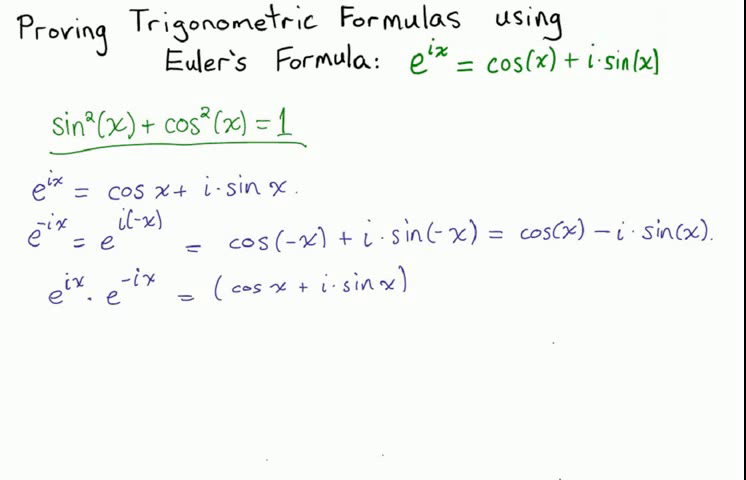 Proving Trigonometric Formulas using
Euler's Formula: e^{ix} = cos(x) + i·sin(x)
sin²(x) + cos²(x) = 1
e^{ix} = cos x + i·sin x.
e^{-ix} = e^{i(-x)} = cos(-x) + i·sin(-x) = cos(x) - i·sin(x).
e^{ix}·e^{-ix} = (cos x + i·sin x)